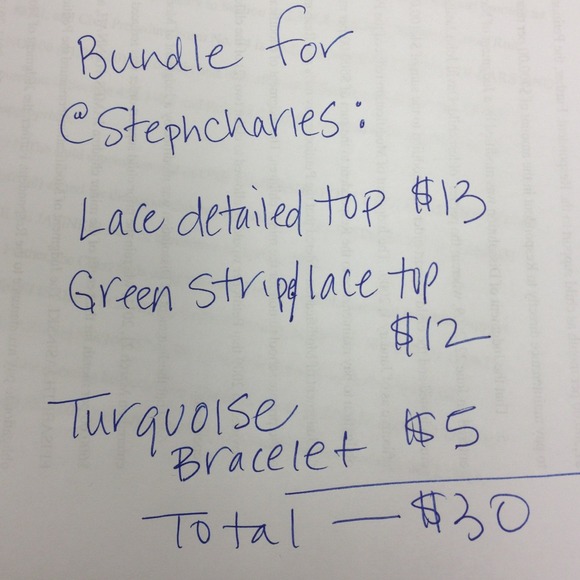 Bundle for
@Stephcharles:
Lace detailed top $13
Green Striped lace top
$12
Turquoise
Bracelet $5
Total — $30